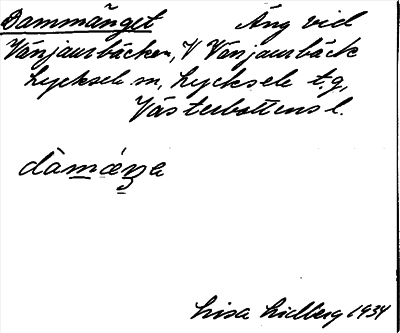 Dammänget Äng vid
Vänjaurbäcken, V Vänjaurbäck
Lycksele sn, Lycksele t.g,
Västerbottens l.
dàmǽŋa
Lisa Lidberg 1934